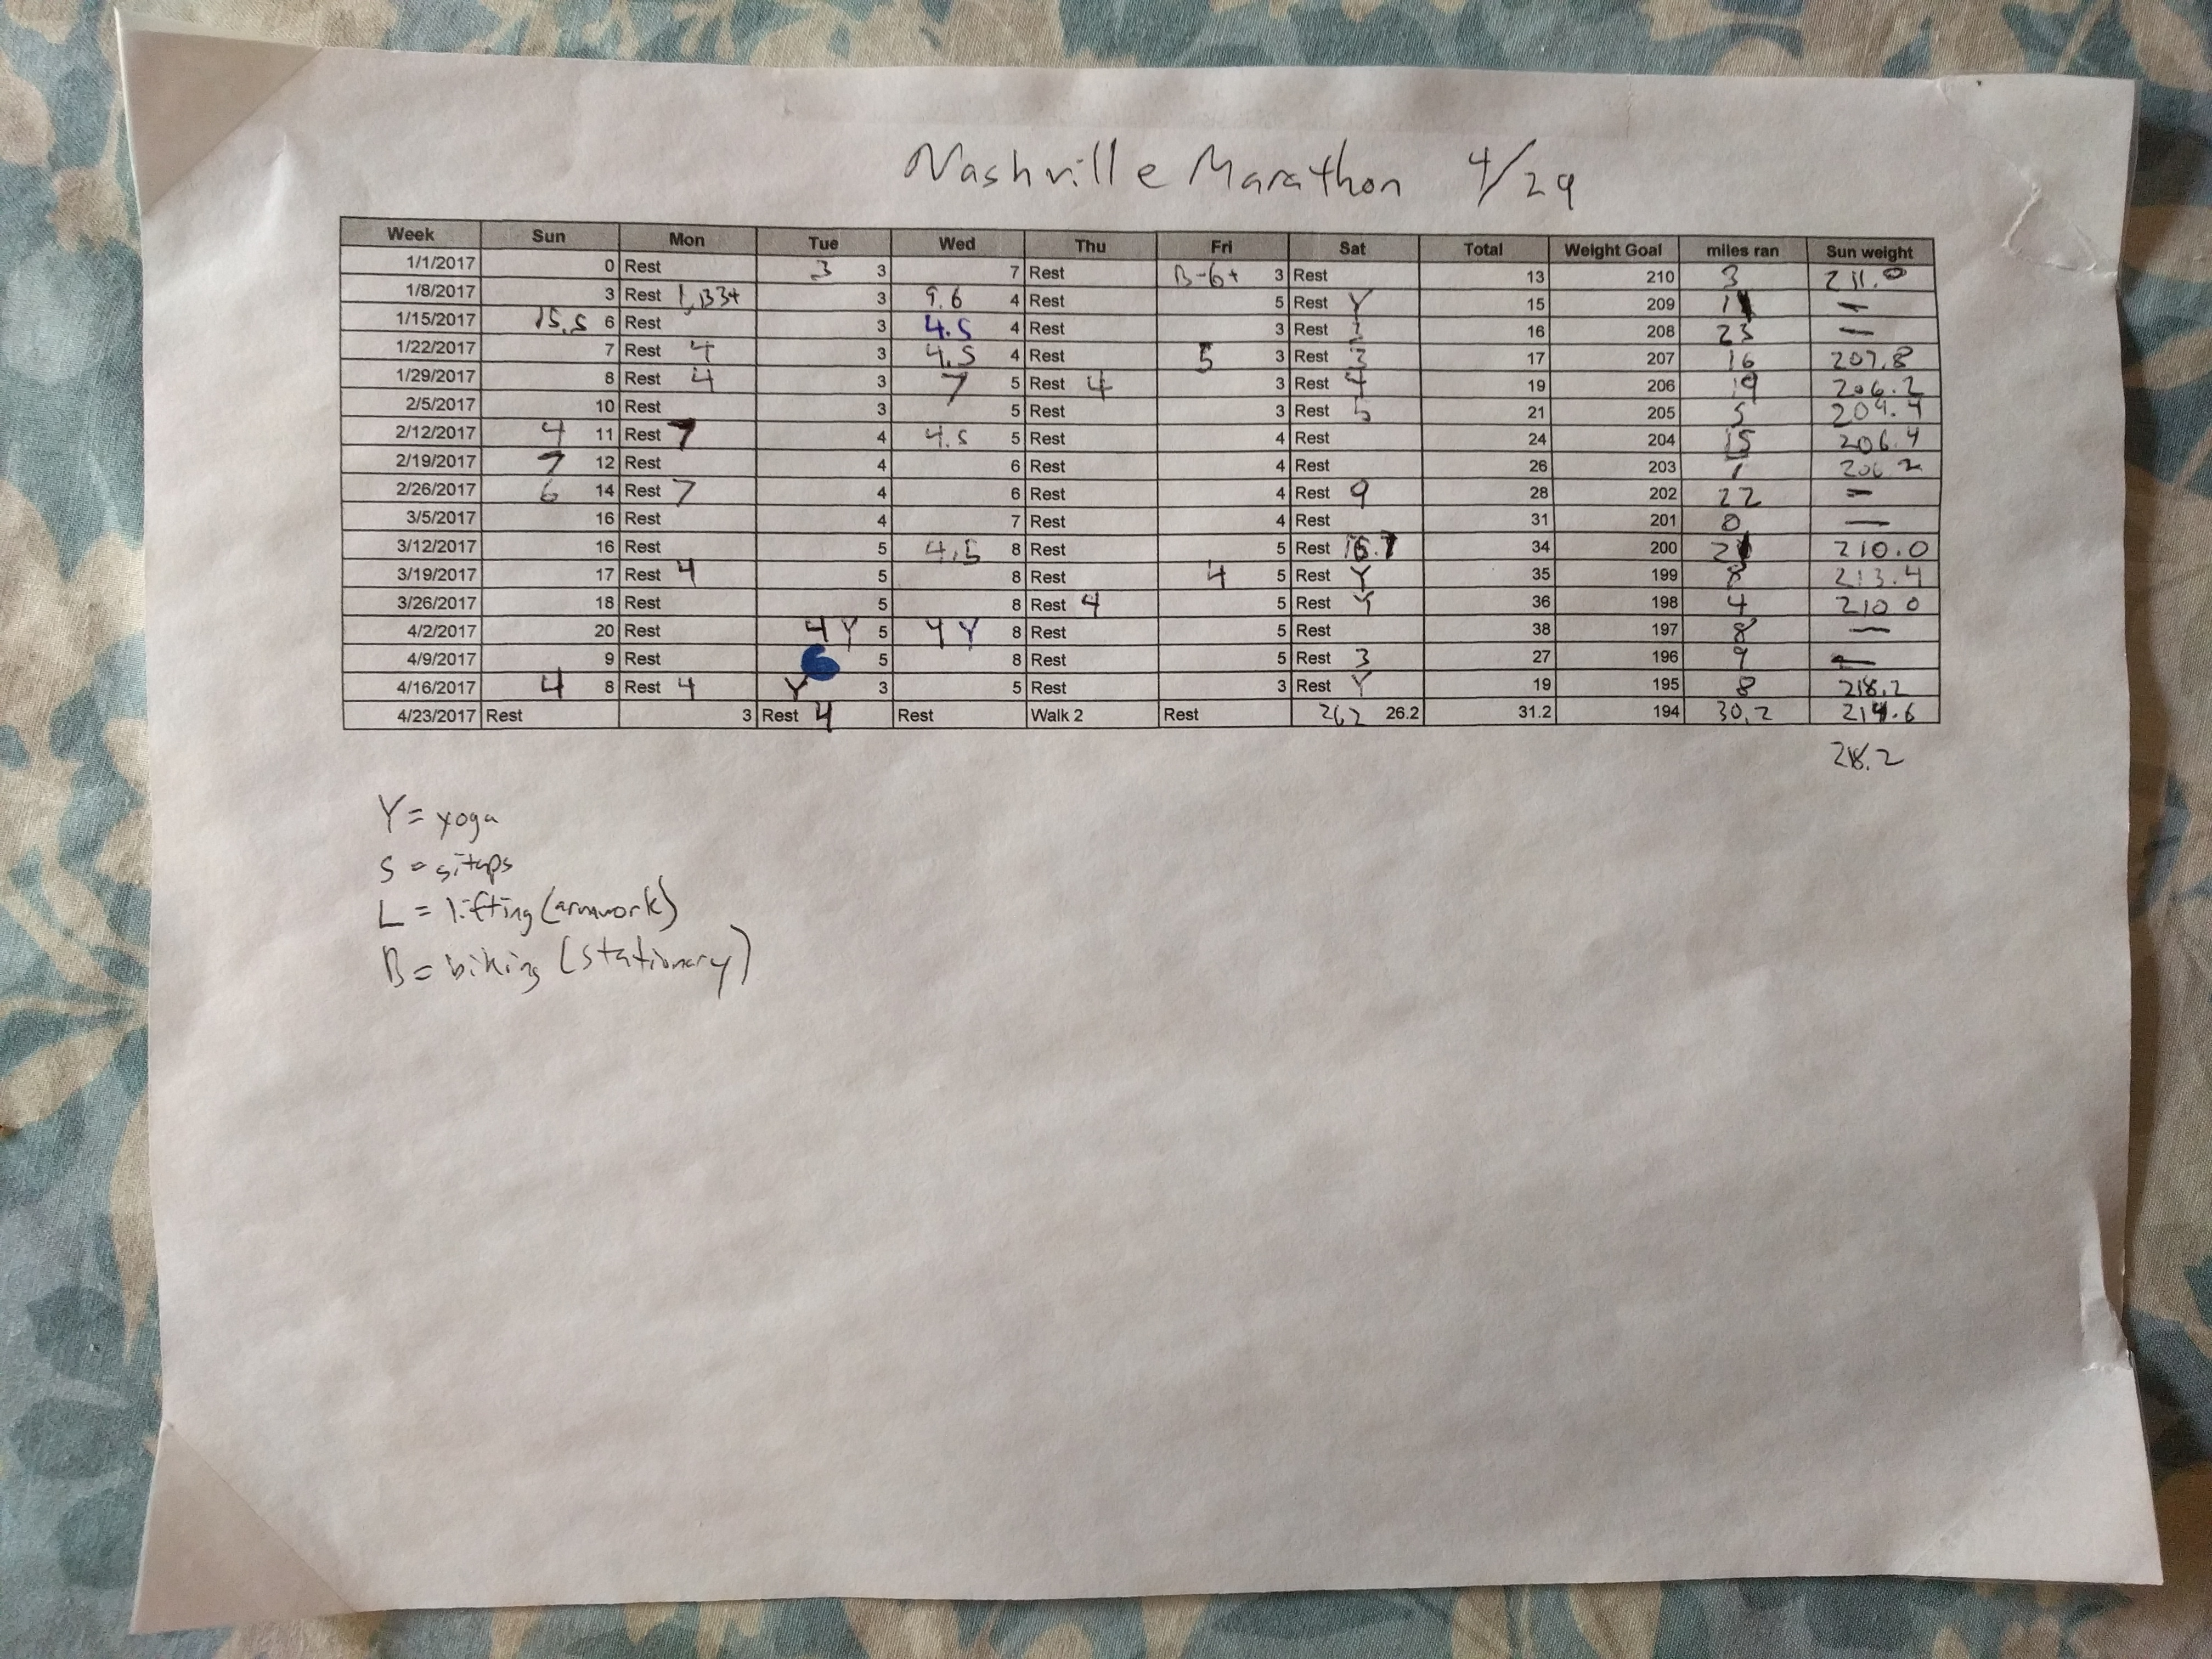 Nashville Marathon 4/29
Week Sun Mon Tue Wed Thu Fri Sat Total Weight Goal miles ran Sun weight
1/1/2017 0 Rest 3 3 7 Rest B-6+ 3 Rest 13 210 3 211.0
1/8/2017 3 Rest 3 9.6 4 Rest 5 Rest Y 15 209 —
1/15/2017 15.5 6 Rest 3 4.5 4 Rest 3 Rest 16 208 23 —
1/22/2017 7 Rest 4 3 4.5 4 Rest 5 3 Rest 3 17 207 16 207.8
1/29/2017 8 Rest 4 3 7 5 Rest 4 3 Rest 4 19 206 19 206.2
2/5/2017 10 Rest 3 5 Rest 3 Rest 5 21 205 5 209.4
2/12/2017 4 11 Rest 7 4 4.5 5 Rest 4 Rest 24 204 15 206.4
2/19/2017 7 12 Rest 4 6 Rest 4 Rest 26 203 7 206.2
2/26/2017 6 14 Rest 7 4 6 Rest 4 Rest 9 28 202 22 —
3/5/2017 16 Rest 4 7 Rest 4 Rest 31 201 0 —
3/12/2017 16 Rest 5 4.5 8 Rest 5 Rest 34 200 210.0
3/19/2017 17 Rest 4 5 8 Rest 4 5 Rest Y 35 199 8 213.4
3/26/2017 18 Rest 5 8 Rest 4 5 Rest Y 36 198 4 210.0
4/2/2017 20 Rest 4 Y 5 4 Y 8 Rest 5 Rest 38 197 8 —
4/9/2017 9 Rest 6 5 8 Rest 5 Rest 3 27 196 9 —
4/16/2017 4 8 Rest 4 Y 3 5 Rest 3 Rest Y 19 195 8 218.2
4/23/2017 Rest 3 Rest 4 Rest Walk 2 Rest 262 26.2 31.2 194 30.2 214.6
218.2
Y = yoga
S = situps
L = lifting (armwork)
B = biking (stationary)